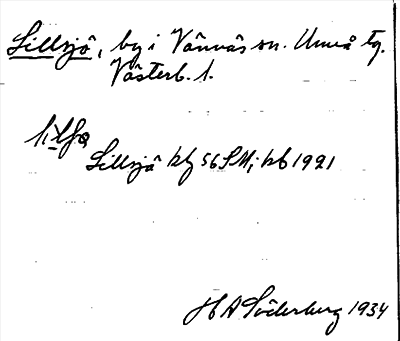 Sillsjö, by i Vännäs sn. Umeå tg.
Västerb. l.
Sillsjö kbg 56 SMj kb 1921
H A Söderberg 1934